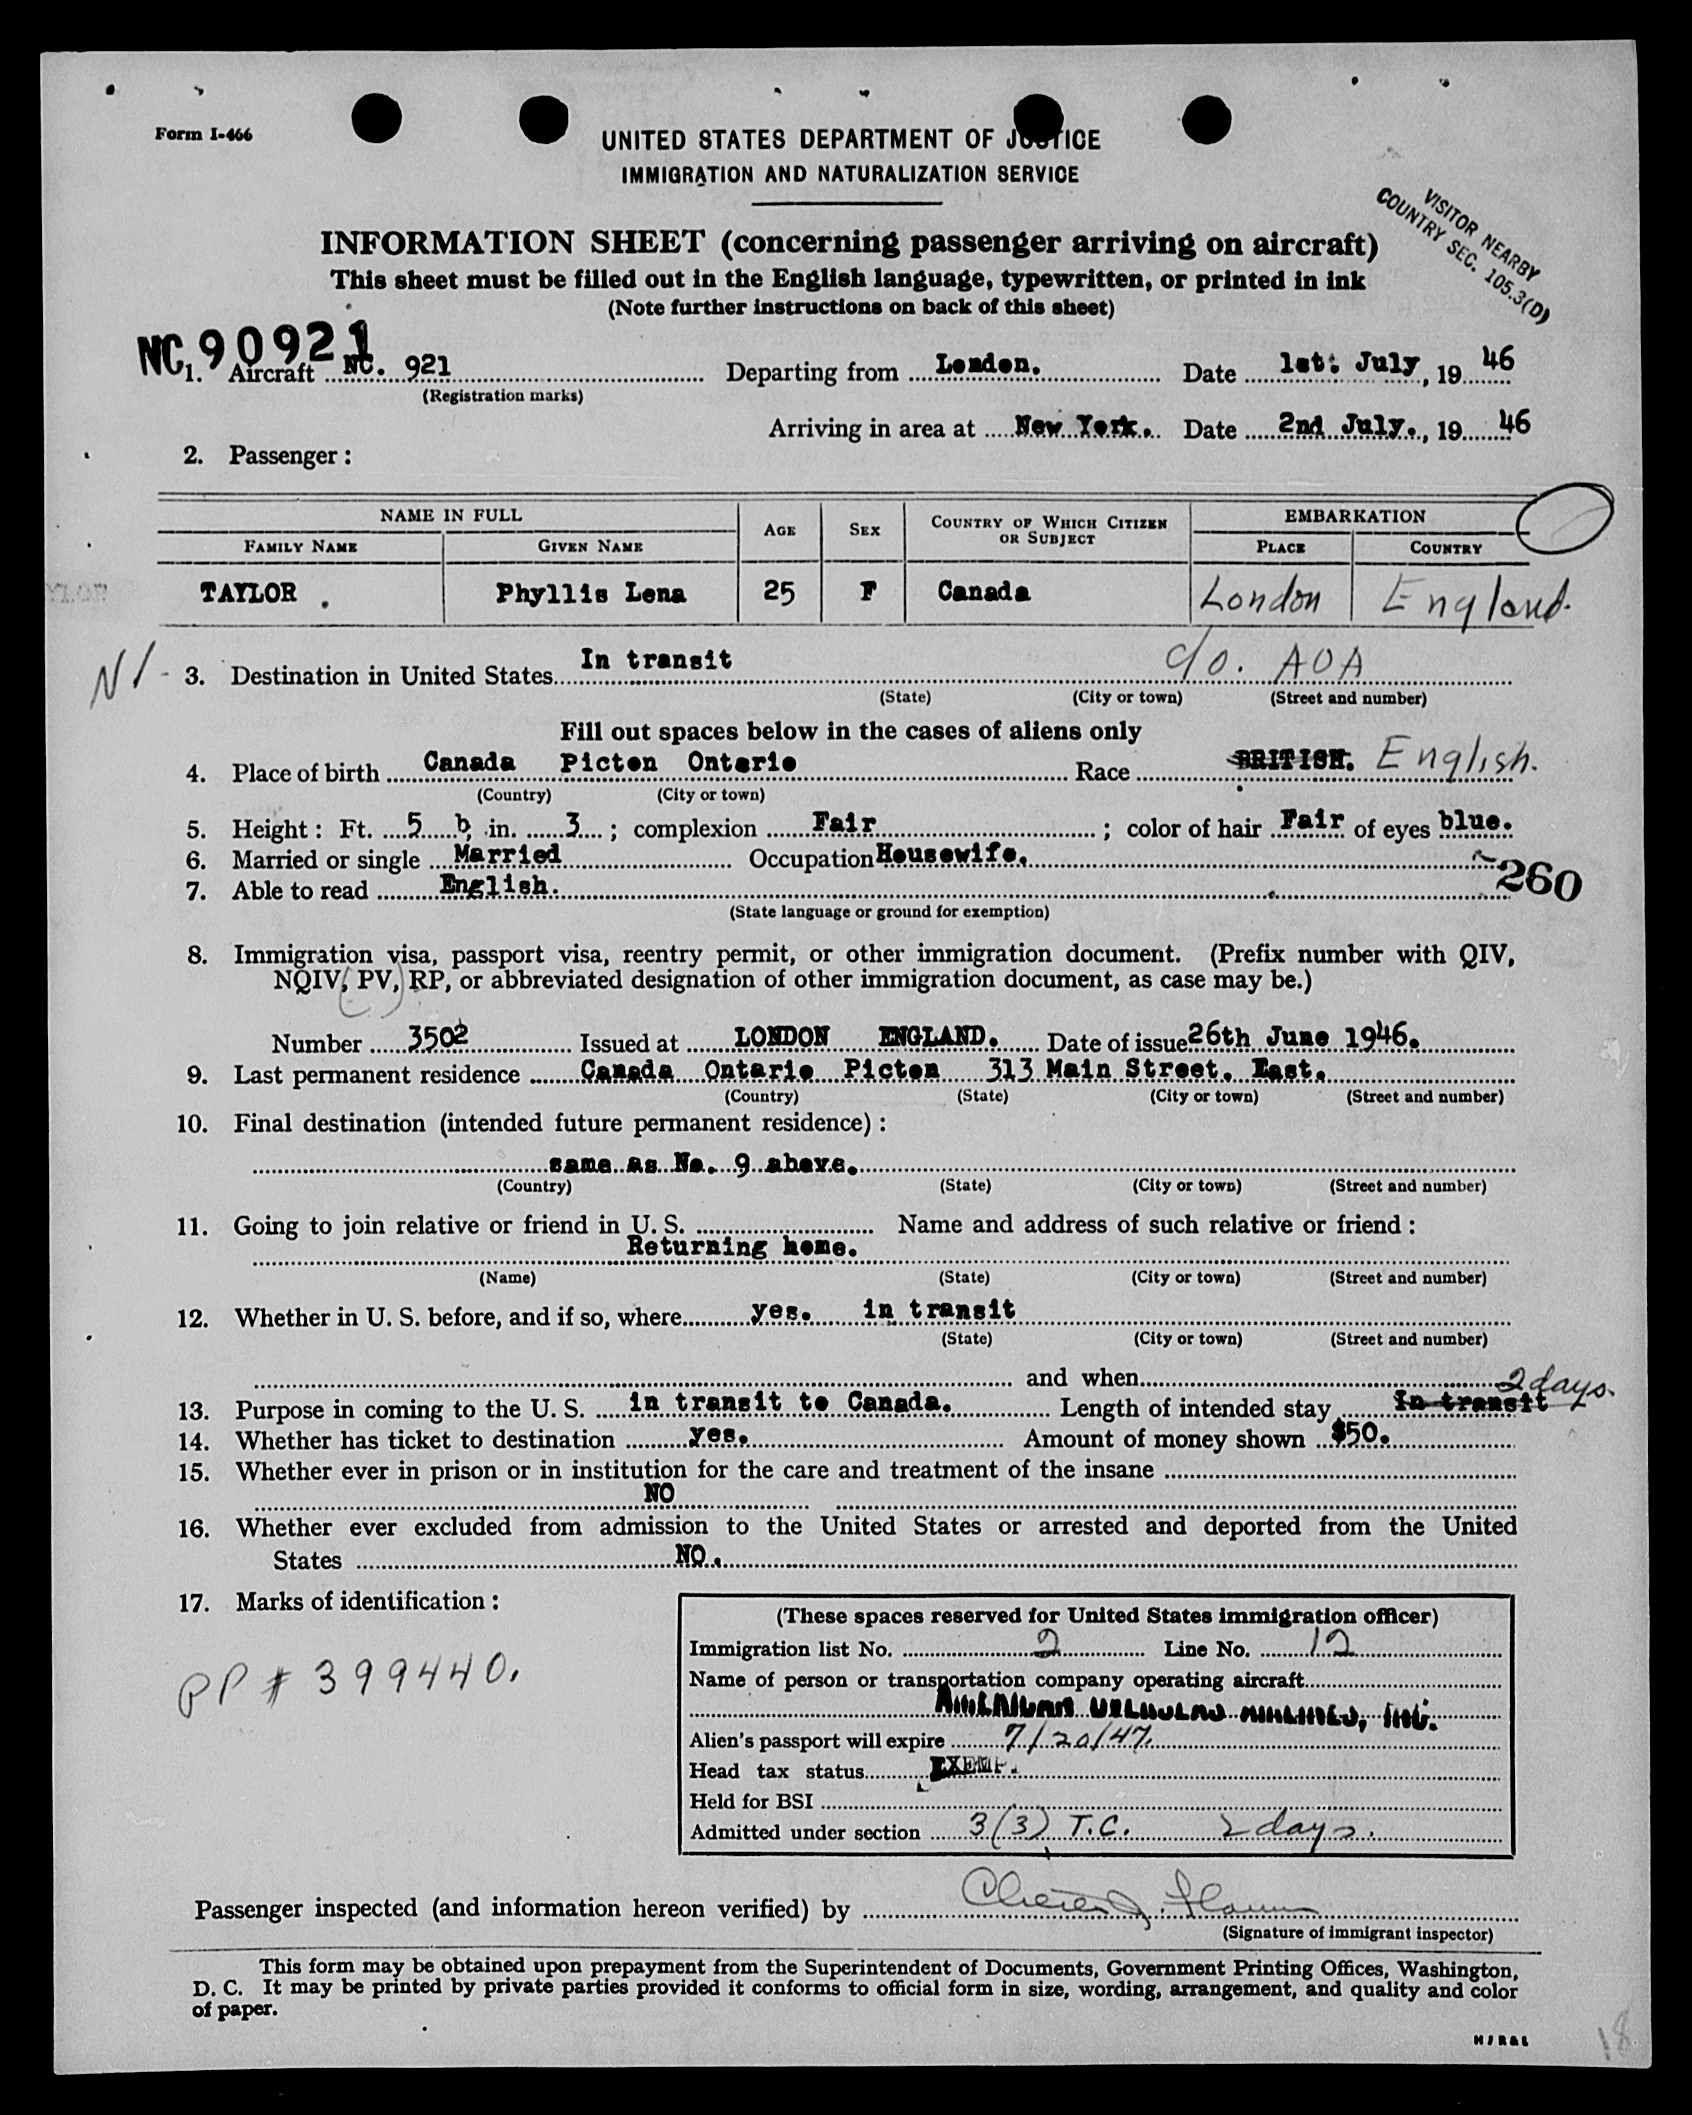 Form I-466
UNITED STATES DEPARTMENT OF JUSTICE
IMMIGRATION AND NATURALIZATION SERVICE
VISITOR NEARBY
COUNTRY SEC. 105.3(D)
INFORMATION SHEET (concerning passenger arriving on aircraft)
This sheet must be filled out in the English language, typewritten, or printed in ink
(Note further instructions on back of this sheet)
NC. 90921
1. Aircraft NC. 921 Departing from London. Date 1st. July, 19 46
(Registration marks)
Arriving in area at New York. Date 2nd July., 19 46
2. Passenger :
NAME IN FULL AGE SEX COUNTRY OF WHICH CITIZEN OR SUBJECT EMBARKATION
FAMILY NAME GIVEN NAME PLACE COUNTRY
TAYLOR . Phyllis Lena 25 F Canada London England.
3. Destination in United States In transit c/o. AOA
(State) (City or town) (Street and number)
Fill out spaces below in the cases of aliens only
4. Place of birth Canada Picton Ontario Race BRITISH. English.
(Country) (City or town)
5. Height : Ft. 5 in. 3 ; complexion Fair ; color of hair Fair of eyes blue.
6. Married or single Married Occupation Housewife.
260
7. Able to read English.
(State language or ground for exemption)
8. Immigration visa, passport visa, reentry permit, or other immigration document. (Prefix number with QIV,
NQIV, PV, RP, or abbreviated designation of other immigration document, as case may be.)
Number 3502 Issued at LONDON ENGLAND. Date of issue 26th June 1946.
9. Last permanent residence Canada Ontario Picton 313 Main Street. East.
(Country) (State) (City or town) (Street and number)
10. Final destination (intended future permanent residence) :
same as No. 9 above.
(Country) (State) (City or town) (Street and number)
11. Going to join relative or friend in U. S. Name and address of such relative or friend :
Returning home.
(Name) (State) (City or town) (Street and number)
12. Whether in U. S. before, and if so, where yes. in transit
(State) (City or town) (Street and number)
and when
2 days.
13. Purpose in coming to the U. S. in transit to Canada. Length of intended stay In transit
14. Whether has ticket to destination yes. Amount of money shown $50.
15. Whether ever in prison or in institution for the care and treatment of the insane
NO
16. Whether ever excluded from admission to the United States or arrested and deported from the United
States NO.
17. Marks of identification :
PP # 399440.
(These spaces reserved for United States immigration officer)
Immigration list No. 2 Line No. 12
Name of person or transportation company operating aircraft
AMERICAN OVERSEAS AIRLINES, INC.
Alien's passport will expire 7/20/47.
Head tax status EXEMPT.
Held for BSI
Admitted under section 3(3) T.C. 2 days.
Passenger inspected (and information hereon verified) by
(Signature of immigrant inspector)
This form may be obtained upon prepayment from the Superintendent of Documents, Government Printing Offices, Washington,
D. C. It may be printed by private parties provided it conforms to official form in size, wording, arrangement, and quality and color
of paper.
18